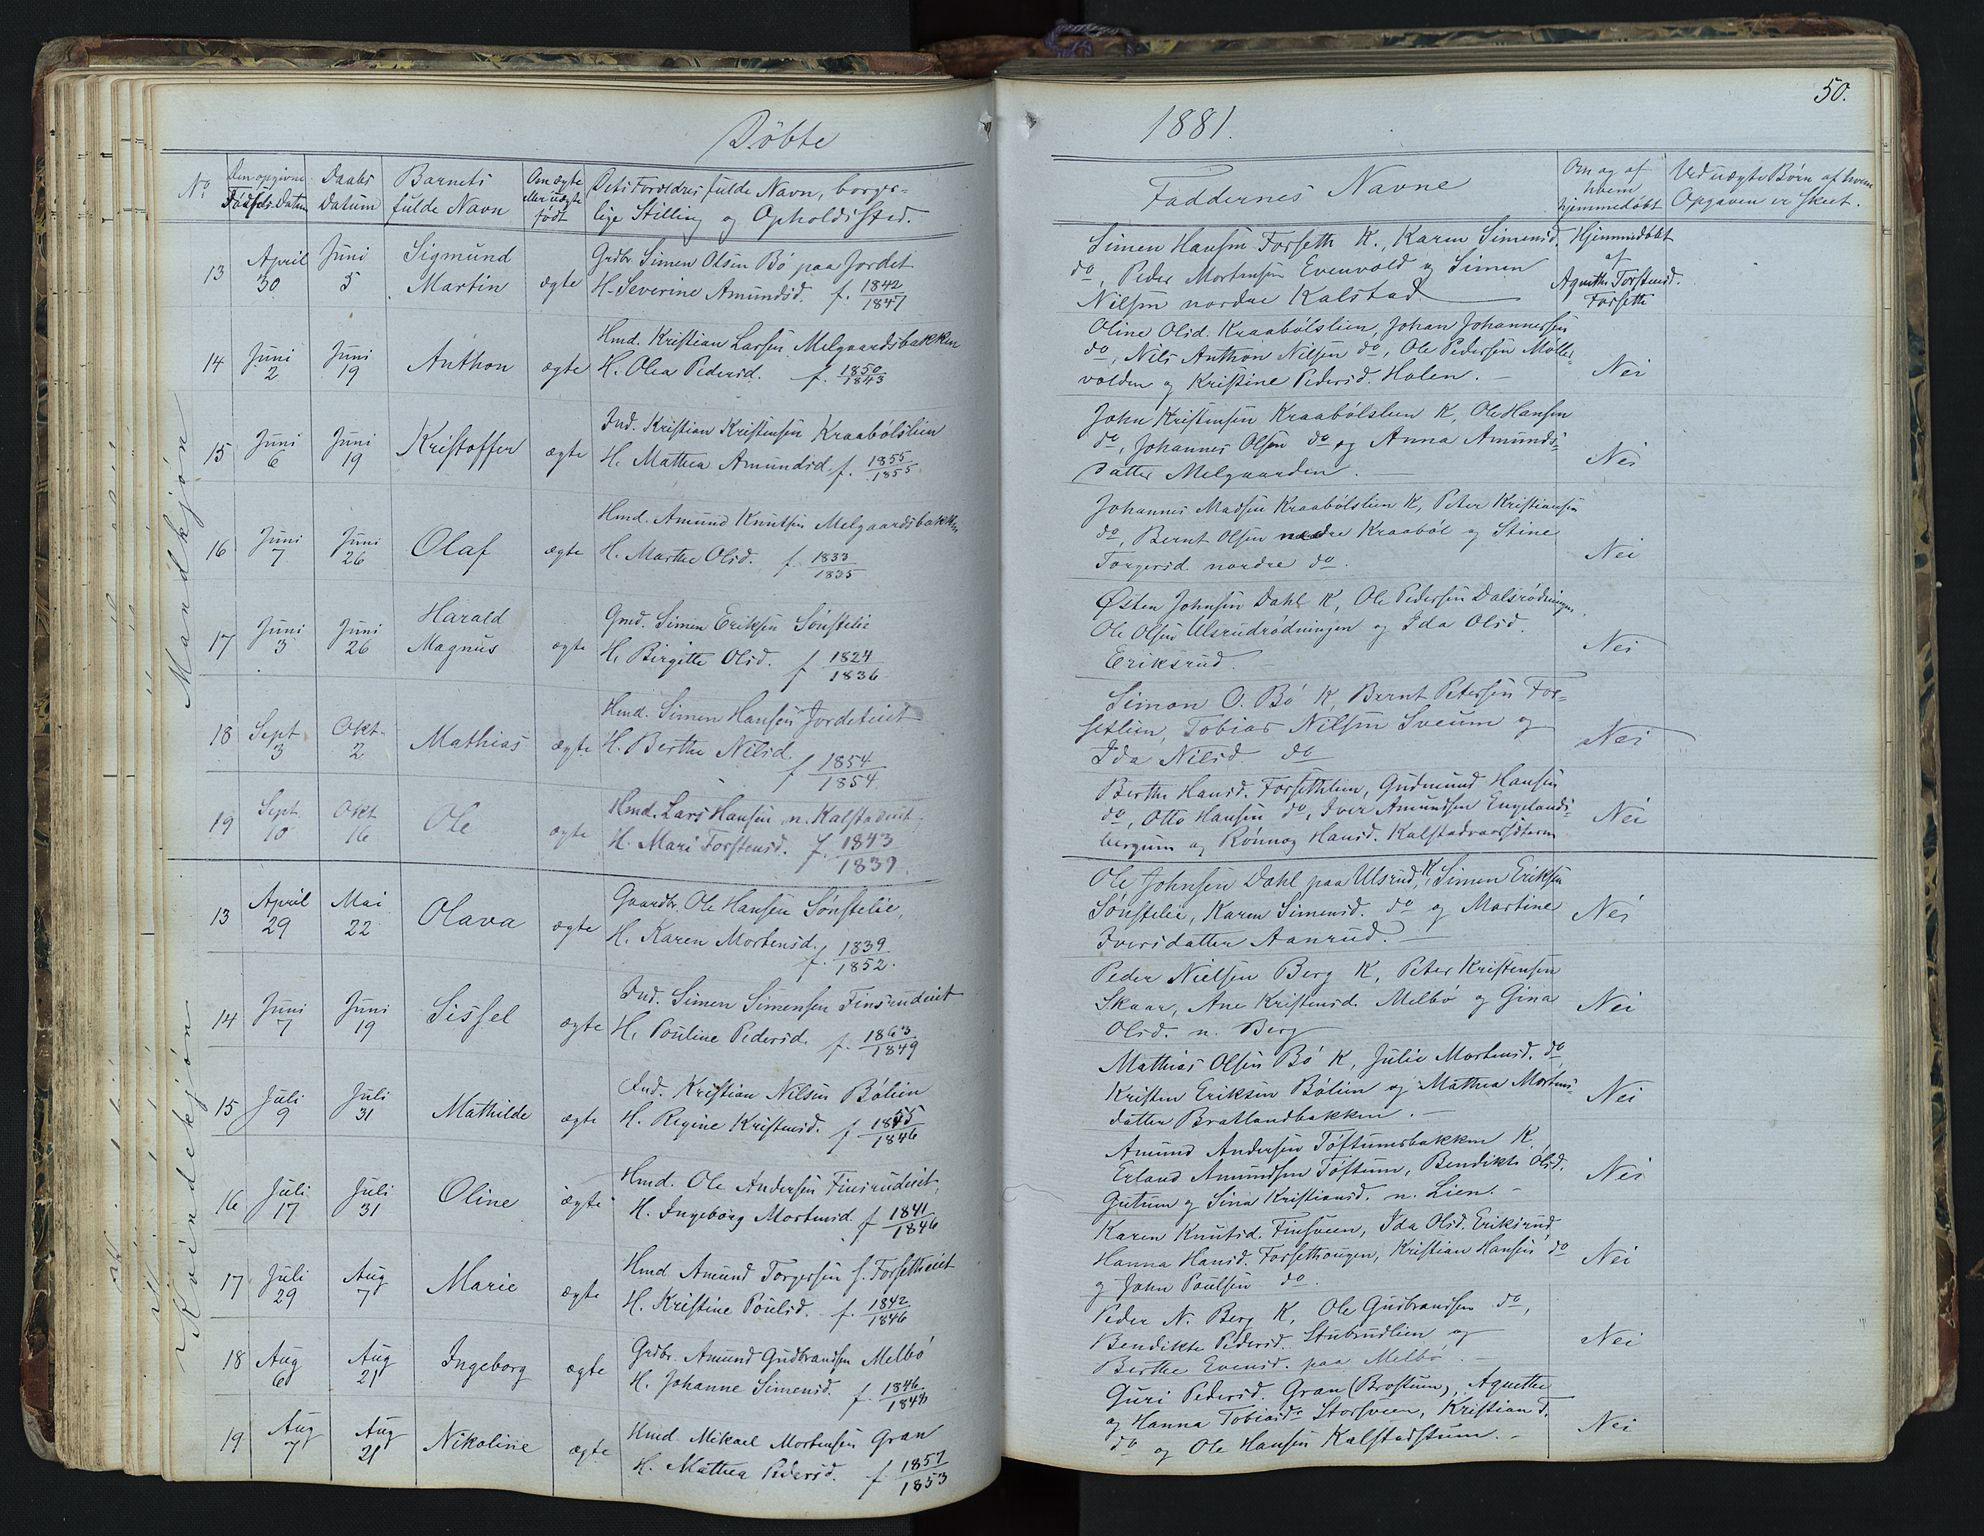 Døbte
1881.
50.
No
Den opgivne Fødsels Datum
Daabs Datum
Barnets fulde Navn
Om ægte eller uægte født
Dets Forældres fulde Navn, borger-
lige Stilling og Opholdssted.
Faddernes Navne
Om og af hvem hjemmedøbt
Ved uægte Børn af hvem
Opgaven er skeet.
Mandkjøn
13 April 30 Juni 5 Sigmund Martin ægte
Grdbr. Simen Olsen Bø paa Jordet
H. Severine Amundsd. f. 1842/1847
Simen Hansen Forseth K., Karen Simensd.
do, Peder Mortensen Evenvold og Simen
Nilsen nordre Kalstad
Hjemmedøbt
af
Agnethe Torstensd.
Forseth
14 Juni 2 Juni 19 Anthon ægte
Hmd. Kristian Larsen Melgaardsbakken
H. Olea Pedersd. f. 1850/1843
Oline Olsd. Kraabølslien, Johan Johannessen
do, Nils Anthon Nilsen do, Ole Pedersen Møller
volden og Kristine Pedersd. Holen.
Nei
15 Juni 6 Juni 19 Kristoffer ægte
Ind. Kristian Kristensen Kraabølslien
H. Mathea Amundsd. f. 1855/1855
John Kristensen Kraabølslien K, Ole Hansen
do, Johannes Olsen do og Anna Amunds-
datter Melgaarden.
Nei
16 Juni 7 Juni 26 Olaf ægte
Hmd. Amund Knutsen Melgaardsbakken
H. Marthe Olsd. f. 1833/1835
Johannes Madsen Kraabølslien K, Peter Kristiansen
do, Bernt Olsen nordre Kraabøl og Stine
Torgersd nordre do.
Nei
17 Juni 3 Juni 26 Harald Magnus ægte
Gmd. Simen Eriksen Sønstelie
H. Birgitte Olsd. f 1824/1836
Østen Johnsen Dahl K, Ole Pedersen Dalsrødningen
Ole Olsen Ulsrudrødningen og Ida Olsd.
Eriksrud.
Nei
18 Sept 3 Okt. 2 Mathias ægte
Hmd. Simen Hansen Jordeteiet
H. Berthe Nilsd. f 1854/1854
Simon O. Bø K, Bernt Petersen For-
setlien, Tobias Nilsen Sveum og
Ida Nilsd. do
Nei
19 Sept. 10 Okt 16 Ole ægte
Hmd. Lars Hansen n. Kalstadeiet.
H. Mari Torstensd. f. 1843/1839.
Berthe Hansd. Forsethlien, Gudmund Hansen
do, Otto Hansen do, Iver Amundsen Engelands-
bergum og Rønnog Hansd. Kalstadvaarsæteren
Nei
Kvindekjøn
13 April 29 Mai 22 Olava ægte
Gaardbr. Ole Hansen Sønstelie,
H. Karen Mortensd. f. 1839/1852.
Ole Johnsen Dahl paa Ulsrud, K, Simen Eriksen
Sønstelie, Karen Simensd. do og Martine
Iversdatter Aanrud.
Nei
14 Juni 7 Juni 19 Sissel ægte
Ind. Simen Simensen Finsrudeiet
H. Pouline Pedersd. f. 1863/1849
Peder Nielsen Berg K, Peter Kristensen
Skaar, Ane Kristensd. Melbø og Gina
Olsd. n. Berg
Nei
15 Juli 9 Juli 31 Mathilde ægte
Ind. Kristian Nilsen Bølien
H. Regine Kristensd. f 1855/1846
Mathias Olsen Bø K, Julie Mortensd. do
Kristen Eriksen Bølien og Mathea Mortens-
datter Bratlandbakken.
Nei
16 Juli 17 Juli 31 Oline ægte
Hmd. Ole Andersen Finsrudeiet,
H. Ingeborg Mortensd. f 1841/1846
Amund Andersen Toftumsbakken K
Erland Amundsen Toftum, Bendikte Olsd.
Gutum og Sina Kristiansd. n. Lien.
Nei
17 Juli 29 Aug 7 Marie ægte
Hmd Amund Torgersen s. Forsetheiet
H. Kristine Poulsd. f. 1842/1846
Karen Knutsd. Finsveen, Ida Olsd. Eriksrud
Hanna Hansd. Forsethougen, Kristian Hansen do
og John Poulsen do.
Nei
18 Aug 6 Aug 21 Ingeborg ægte
Grdbr. Amund Gudbrandsen Melbø
H. Johanne Simensd. f. 1846
Peder N. Berg K, Ole Gudbrandsen do,
Bendikte Pedersd. Stubrudlien og
Berthe Evensd. paa Melbø.
Nei
19 Aug 7 Aug 21 Nikoline ægte
Hmd. Mikael Mortensen Gran
H. Mathea Pedersd. f 1857/1853
Guri Pedersd. Gran (Brostuen), Agnethe
og Hanna Tobiasd. Storsveen, Kristian J.
do og Ole Hansen Kalstadstuen.
Nei